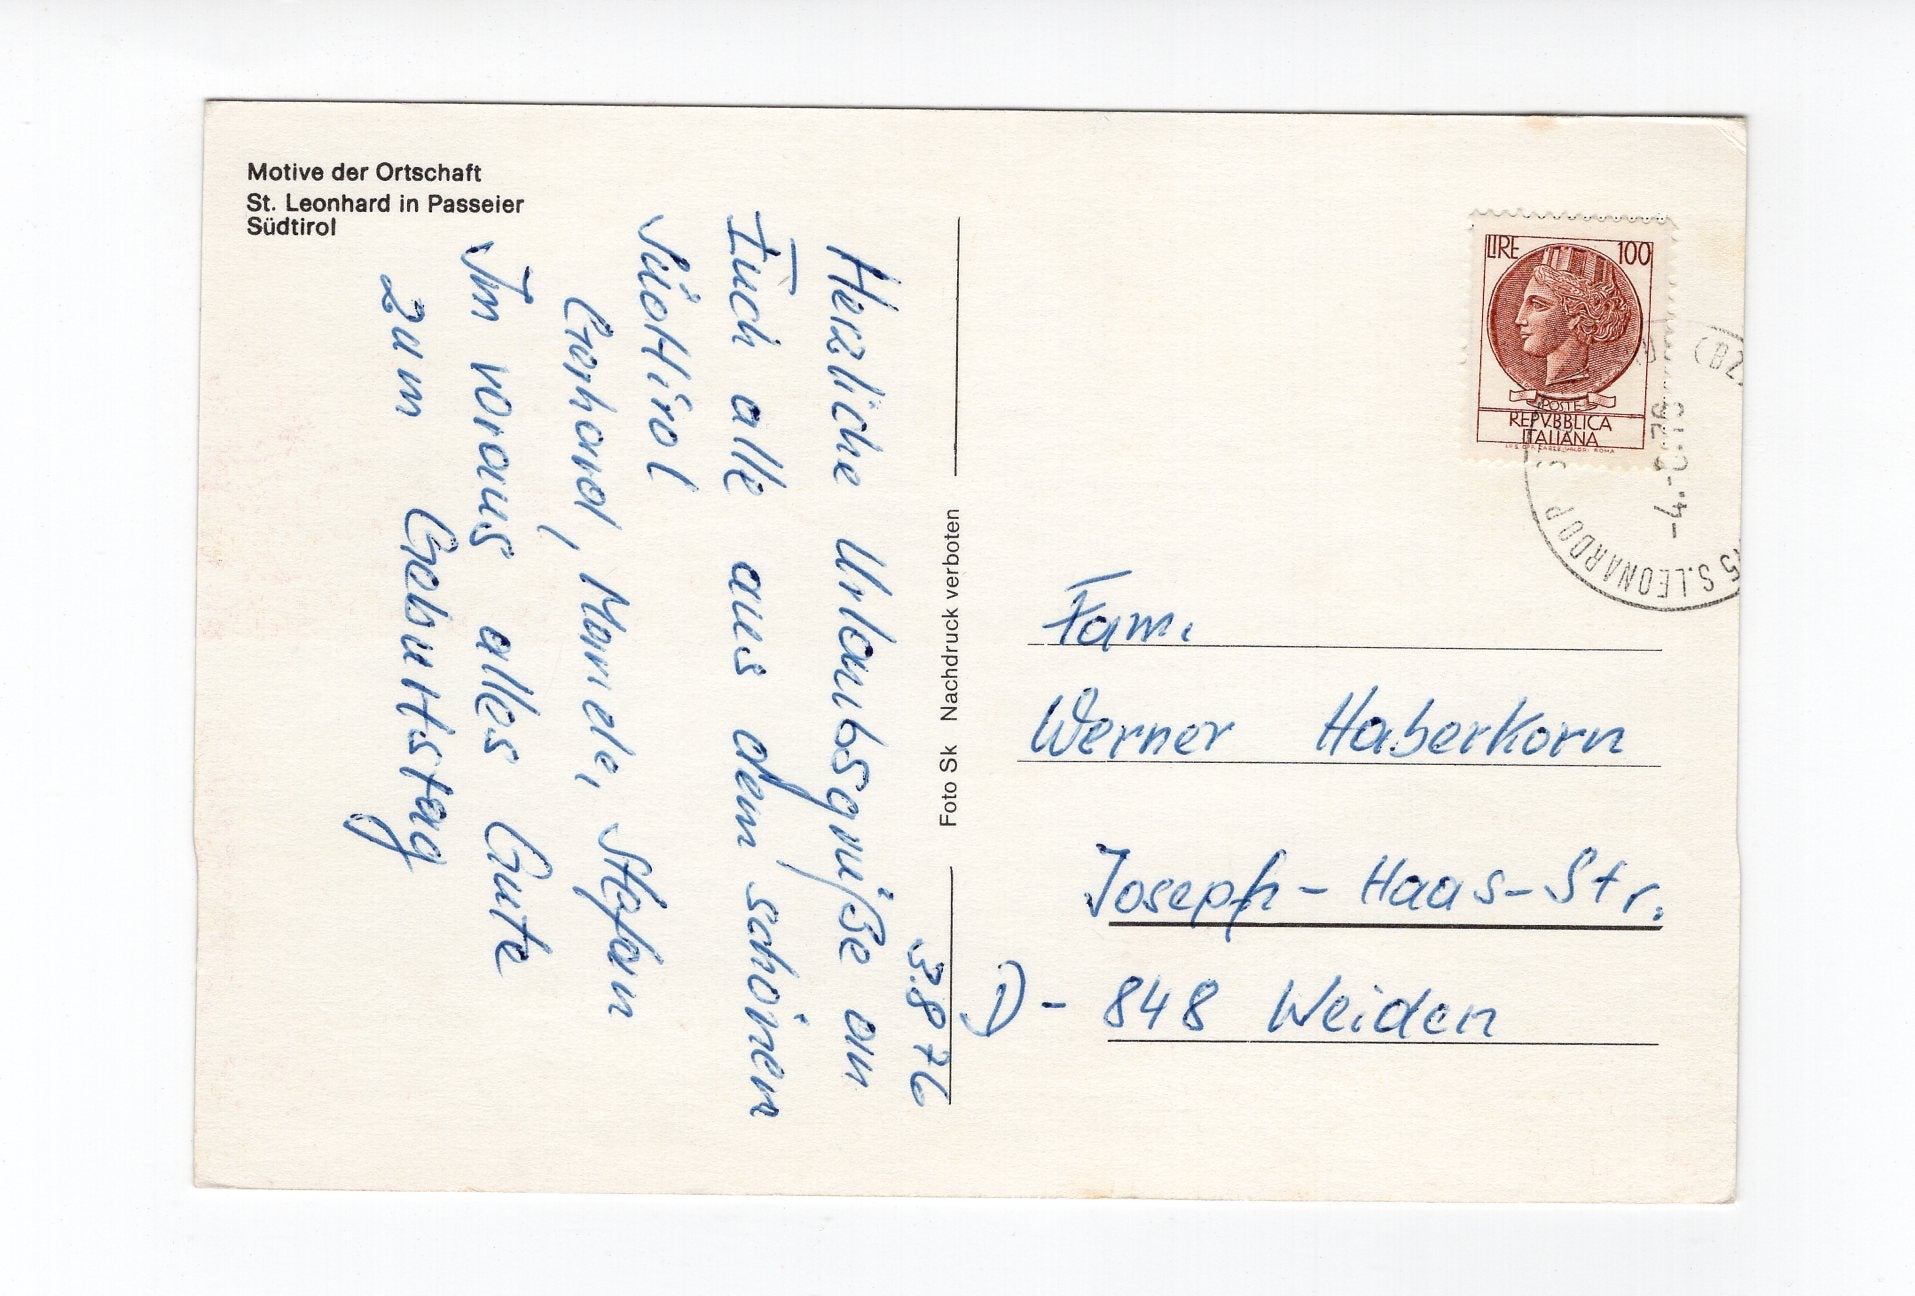 Motive der Ortschaft
St. Leonhard in Passeier
Südtirol
3.8.76
Herzliche Urlaubsgrüße an
Euch alle aus dem schönen
Südtirol
Gerhard, Mariele, Stefan
Im voraus alles Gute
zum Geburtstag
Foto Sk Nachdruck verboten
LIRE 100
POSTE
REPVBBLICA
ITALIANA
(BZ)
-4.-8.76
S.LEONARDO P
Fam.
Werner Haberkorn
Joseph-Haas-Str.
D-848 Weiden